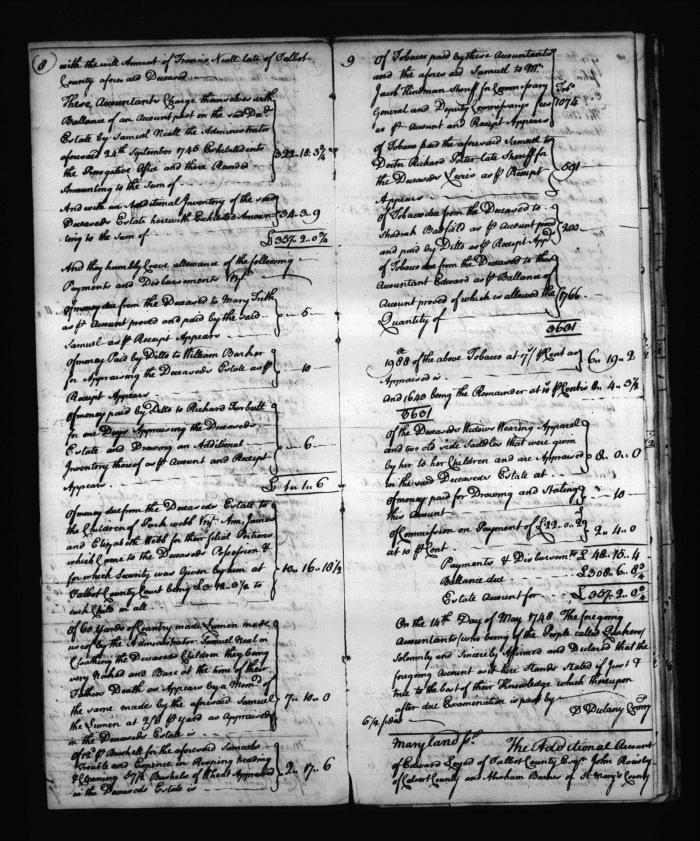 8
with the will Annext of Francis Neall late of Talbot
County afores'd Deceased
These Accountants Charge themselves with
Ballance of an Account past on the said Dec'ds
Estate by Samuel Neall the Administrator
aforesaid 24th September 1746 Exhibited into
the Prerogative Office and there Recorded
Amounting to the Sum of 322..18..3¾
And with an Additional Inventory of the said
Deceaseds Estate herewith Exhibited Amoun
ting to the Sum of 34..3..9
£357..2..0¾
And they humbly Crave allowance of the following
Payments and Disbursements Viz't
Of money due from the Deceased to Mary Frith
as p Account proved and paid by the said
Samuel as p Receipt Appears 5
Of money Paid by Ditto to William Barker
for Appraising the Deceaseds Estate as p
Receipt Appears 10
Of money paid by Ditto to Richard Turbutt
for one Days Appraising the Deceaseds
Estate and Drawing an Additional
Inventory thereof as p Account and Receipt
Appears 6
£1..1..6
Of money due from the Deceaseds Estate to
the Children of Park Webb Viz't Ann, James
and Elizabeth Webb for their filial Portions
which Came to the Deceaseds Possession &
for which Security was Given by him at
Talbot County Court being £3..12..3½ to
each Child in all 10..16..10½
Of 60 Yards of Country made Linnen made
use of by the Administrator Samuel Neal in
Cloathing the Deceaseds Children they being
very Naked and Bare at the time of their
Fathers Death as Appears by a Mem'o of
the same made by the aforesaid Samuel
the Linnen at 2/6 p Yard as Appraised
in the Deceaseds Estate is 7..10..0
Of p Bushell for the aforesaid Samuels
Trouble and Expence in Reaping treading
& Cleaning 57½ Bushels of Wheat Appraised
in the Deceaseds Estate is 2..17..6
9
Of Tobacco paid by these Accountants
and the afores'd Samuel to Mr.
Jacob Hindman Sheriff for Commissary
General and Deputy Commissarys fees
as p Account and Receipt Appears
Tob'o
1074
Of Tobacco paid the aforesaid Samuel to
Doctor Richard Porter late Sheriff for
the Deceaseds Levies as p Receipt
Appears 591
Of Tobacco due from the Deceased to
Shadrah Botfield as p Account prov'd
and paid by Ditto as p Receipt App's 200
Of Tobacco due from the Deceased to this
Accountant Edward as p Ballance of
Account proved of which is allowed the
Quantity of 1766
3631
1988 of the above Tobacco at p Cent as
Appraised is 6..19..2
and 1643 being the Remainder at p Cent is 8..4..3½
3631
Of the Deceaseds Widows Wearing Apparel
and two old side Saddles that were given
by her to her Children and are Appraised
in the said Deceaseds Estate at 8..0..0
Of money paid for Drawing and Stating
this Account 10
Of Commission on Payment of £22..0..2¾
at 10 p Cent 2..4..0
Payments & Disbursm'ts £48..15..4
Ballance due £308..6..8¾
Estate Account for £357..2..0¾
On the 14th Day of May 1748 The foregoing
Accountants (who being of the People called Quakers)
Solemnly and Sincerely Affirmed and Declared that the
foregoing Account as it here Stands Stated is Just &
true to the best of their Knowledge which thereupon
after due Examination is past by
D Dulany Com'ry
Maryland Ss. The Additional Account
of Edward Loyd of Talbot County Esq'r John Rousby
of Calvert County and Abraham Barnes of St. Mary's County